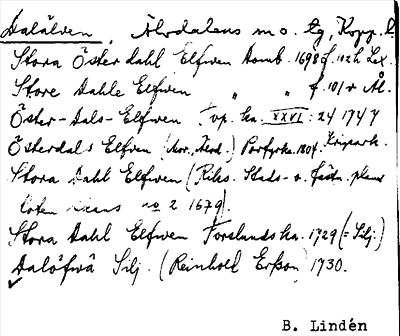 Dalälven, Älvdalens m o. tg, Kopp. l.
Stora Öster dahl Elfwen Domb. 1698 f. 112 h Lex.
Store Dahle Elfwen " " f. 101 v Äl.
Öster-Dals-Elfwen Tvp. ka. XXVI: 24 1747
Österdals Elfven (Mor., Ferd.) Porfyrka. 1804. Kripark.
Stora Dahl Elfwen (Riks. Stads- o. fästn. planer
no 2 1679).
Stora Dahl Elfwen Forslunds ka. 1729 (= Silj.)
Dalöfwä Silj. (Reinhold Erßon) 1730.
B. Lindén